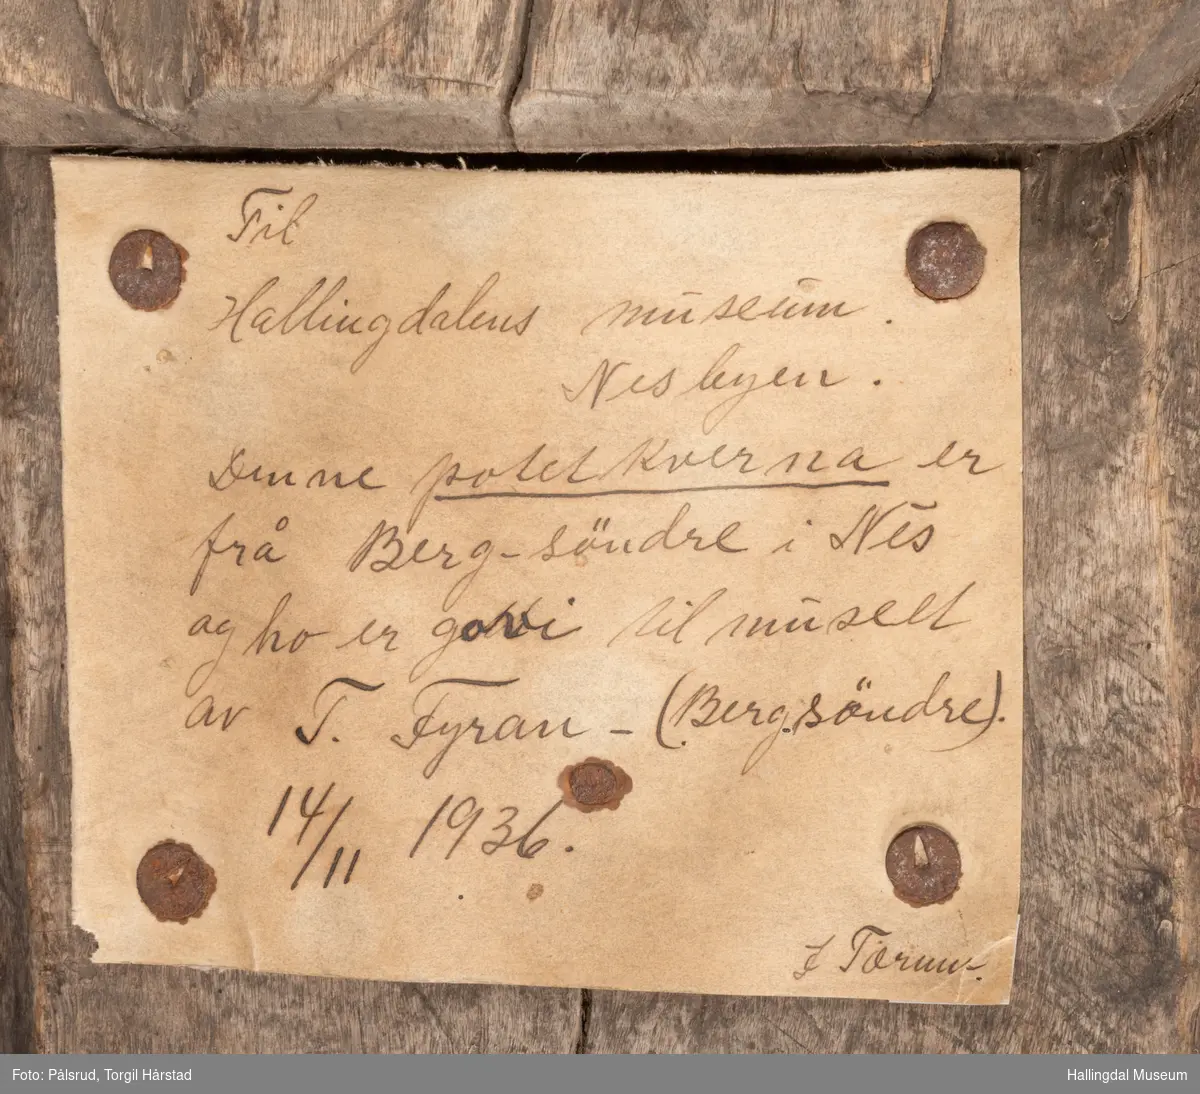 Til
Hallingdalens museum.
Nesbyen.
Denne potetkverna er
frå Berg-söndre i Nes
og ho er govi til museet
av T. Fyran - (Berg söndre).
14/11 1936.
Foto: Pålsrud, Torgil Hårstad
Hallingdal Museum